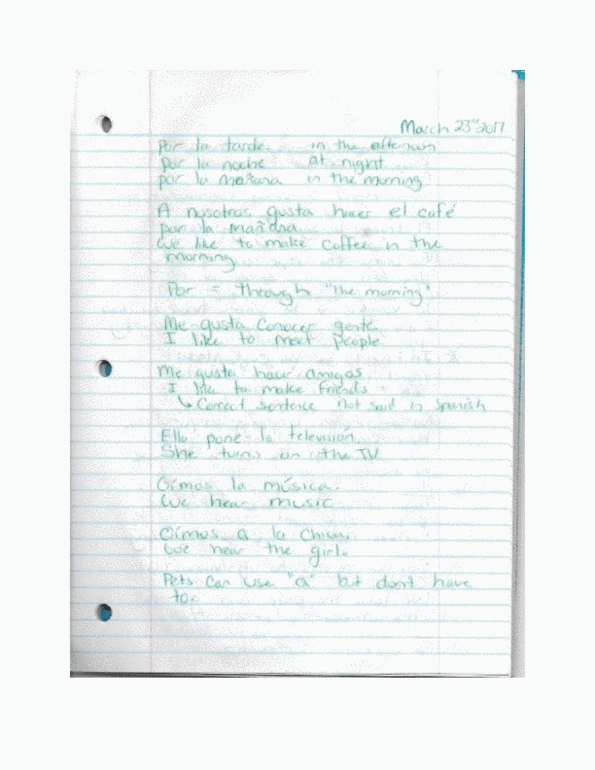 March 23rd 2017
Por la tarde in the afternoon
Por la noche at night
por la mañana in the morning
A nosotros gusta hacer el café
por la mañana
We like to make coffee in the
morning
Por = through "the morning"
Me gusta conocer gente
I like to meet people
Me gusta hacer amigos
I like to make friends
↳ Correct sentence not said in Spanish
Ella pone la televisión
She turns on the TV
Oímos la música.
We hear music
Oímos a la chica.
We hear the girl.
Pets can use "a" but don't have
to.